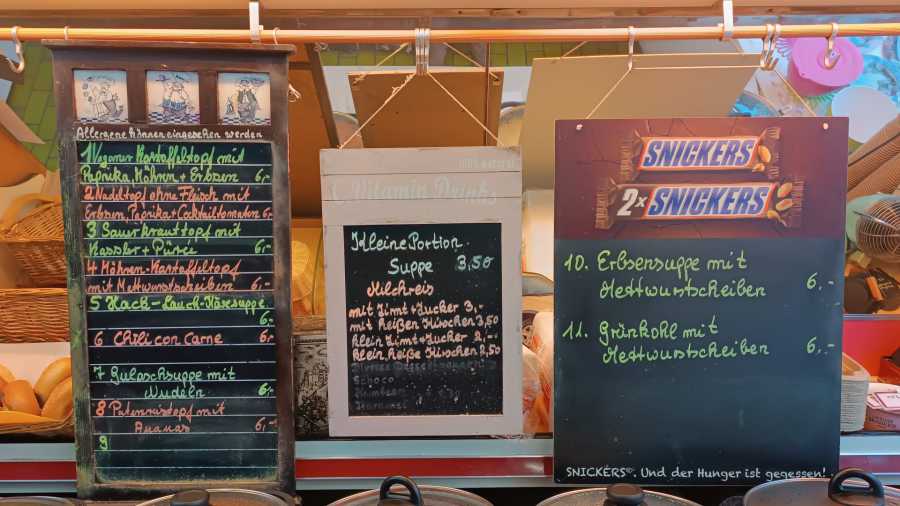 Allergene können eingesehen werden
1 Veganer Kartoffeltopf mit
Paprika, Möhren + Erbsen 6,-
2 Nudeltopf ohne Fleisch mit
Erbsen, Paprika + Cocktailtomaten 6,-
3 Sauerkrauttopf mit
Kassler + Püree 6,-
4 Möhren-Kartoffeltopf
mit Mettwurstscheiben 6,-
5 Hack-Lauch-Käsesuppe
6,-
6 Chili con Carne 6,-
7 Gulaschsuppe mit
Nudeln 6,-
8 Putenreistopf mit
Ananas 6,-
9
Vitamin Drinks
Kleine Portion
Suppe 3,50
Milchreis
mit Zimt + Zucker 3,-
mit heißen Kirschen 3,50
klein Zimt + Zucker 2,-
klein heiße Kirschen 2,50
Schoco
Himbeer
Karamel
SNICKERS
2x SNICKERS
10. Erbsensuppe mit
Mettwurstscheiben 6,-
11. Grünkohl mit
Mettwurstscheiben 6,-
SNICKERS®. Und der Hunger ist gegessen!